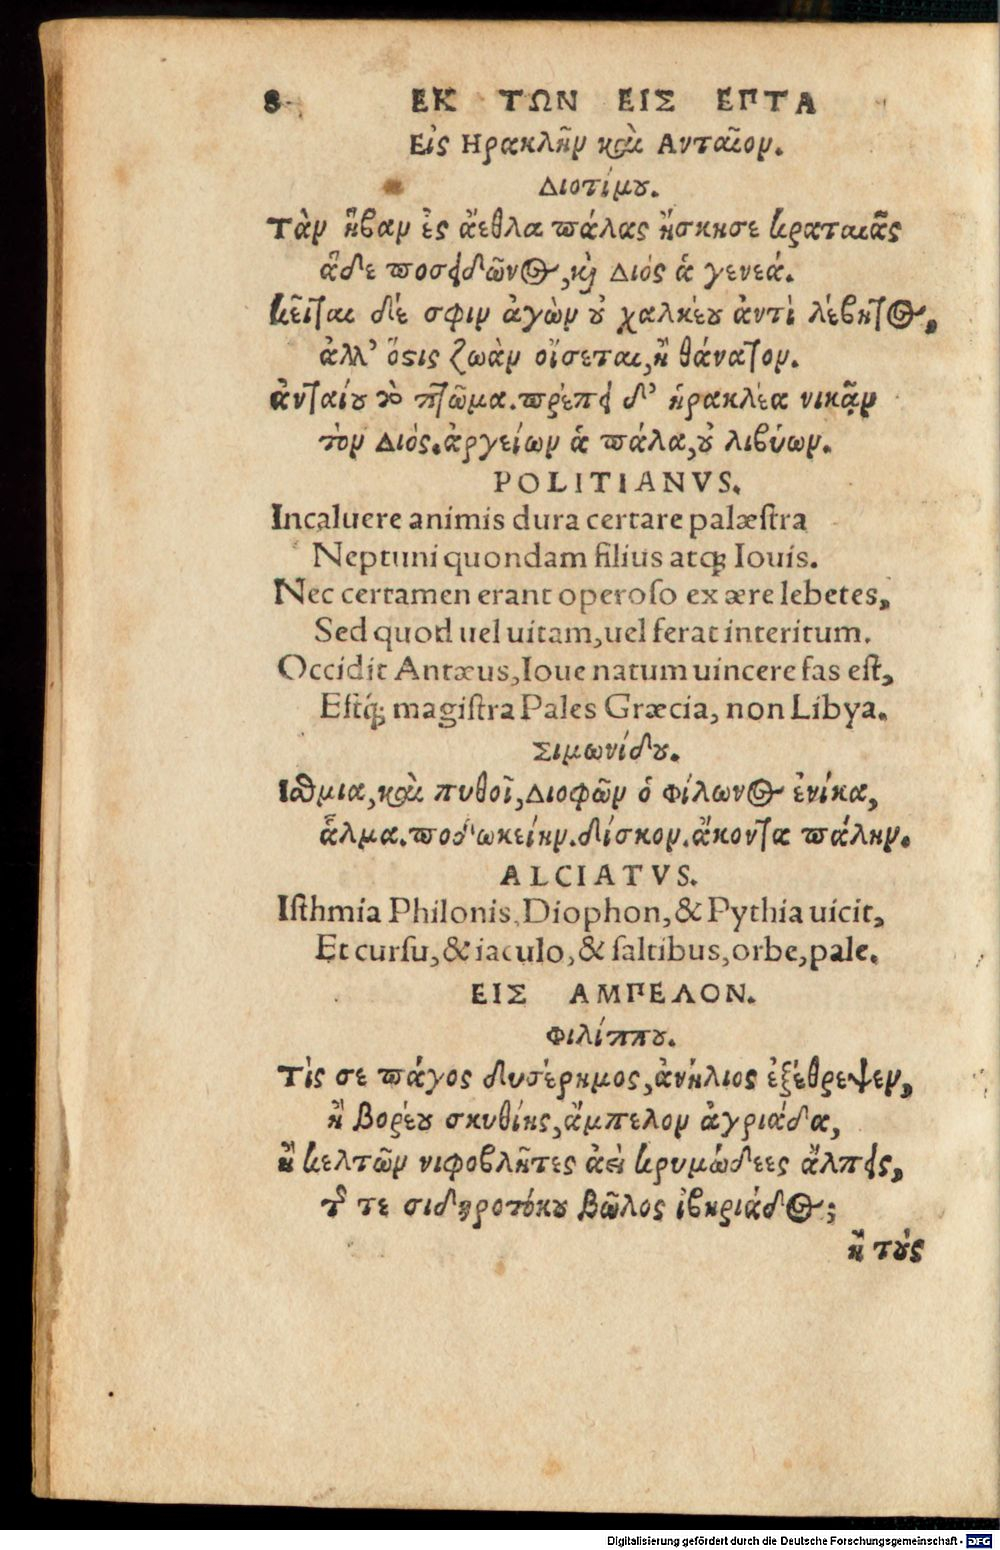 8 ΕΚ ΤΩΝ ΕΙΣ ΕΠΤΑ
Εἰς Ηρακλῆν καὶ Ανταῖον.
Διοτίμου.
Τὰν ἥβαν ἐς ἄεθλα πάλας ἤσκησε κραταιᾶς
ἅδε ποσειδῶνος, καὶ Διός ἁ γενεά.
κεῖται δέ σφιν ἀγὼν οὐ χαλκέου ἀντὶ λέβητος,
ἀλλ' ὅστις ζωὰν οἴσεται, ἢ θάνατον.
ἀνταίου τὸ πτῶμα. πρέπει δ' ἡρακλέα νικᾷν
τὸν Διός. ἀργείων ἁ πάλα, οὐ λιβύων.
POLITIANVS.
Incaluere animis dura certare palæſtra
Neptuni quondam filius atq; Iouis.
Nec certamen erant operoſo ex ære lebetes,
Sed quod uel uitam, uel ferat interitum.
Occidit Antæus, Ioue natum uincere fas eſt,
Eſtq́; magiſtra Pales Græcia, non Libya.
Σιμωνίδου.
Ισθμια, καὶ πυθοῖ, Διοφῶν ὁ Φίλωνος ἐνίκα,
ἅλμα. ποδωκείην. δίσκον. ἄκοντα πάλην.
ALCIATVS.
Iſthmia Philonis, Diophon, & Pythia uicit,
Et curſu, & iaculo, & ſaltibus, orbe, pale.
ΕΙΣ ΑΜΠΕΛΟΝ.
Φιλίππου.
Τὶς σε πάγος δυσέρημος, ἀνήλιος ἐξέθρεψεν,
ἢ βορέου σκυθίης, ἄμπελον ἀγριάδα,
ἢ κελτῶν νιφοβλῆτες ἀεὶ κρυμώδεες ἄλπεις,
τῆς τε σιδηροτόκου βῶλος ἰβηριάδος;
ἢ τοὺς
Digitalisierung gefördert durch die Deutsche Forschungsgemeinschaft - DFG